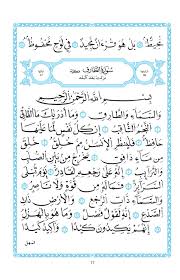 مُّحِيطٌ بَلْ هُوَ قُرْءَانٌ مَّجِيدٌ فِى لَوْحٍ مَّحْفُوظٍ
سُورَةُ الطَّارِقِ مَكِّيَّة
بِسْمِ اللَّهِ الرَّحْمَٰنِ الرَّحِيمِ
وَالسَّمَاءِ وَالطَّارِقِ وَمَا أَدْرَاكَ مَا الطَّارِقُ
النَّجْمُ الثَّاقِبُ إِن كُلُّ نَفْسٍ لَّمَّا عَلَيْهَا
حَافِظٌ فَلْيَنظُرِ الْإِنسَانُ مِمَّ خُلِقَ خُلِقَ
مِن مَّاءٍ دَافِقٍ يَخْرُجُ مِن بَيْنِ الصُّلْبِ
وَالتَّرَائِبِ إِنَّهُ عَلَىٰ رَجْعِهِ لَقَادِرٌ يَوْمَ تُبْلَى
السَّرَائِرُ فَمَا لَهُ مِن قُوَّةٍ وَلَا نَاصِرٍ
وَالسَّمَاءِ ذَاتِ الرَّجْعِ وَالْأَرْضِ ذَاتِ
الصَّدْعِ إِنَّهُ لَقَوْلٌ فَصْلٌ وَمَا هُوَ بِالْهَزْلِ
إِنَّهُمْ يَكِيدُونَ كَيْدًا وَأَكِيدُ كَيْدًا